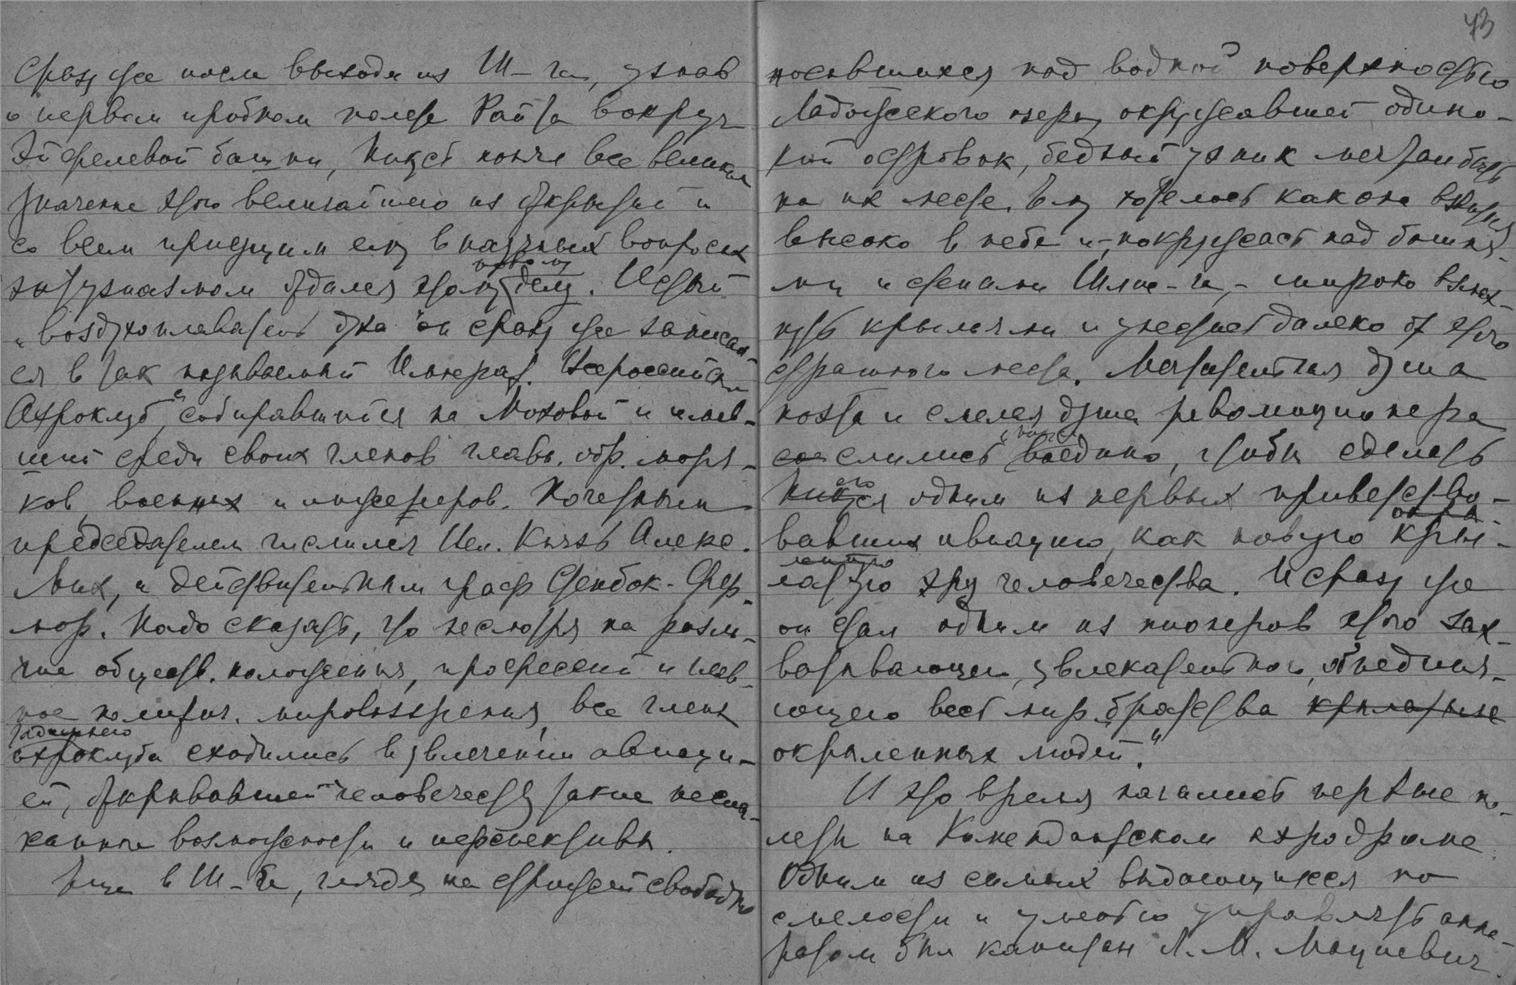 Сразу же после выхода из Ш-га, узнав
о первом пробном полете Райта вокруг
Эйфелевой башни, понял все великое
значение этого величайшего из открытий и
со всем присущим ему в научных вопросах
энтузиазмом отдался этому новому делу. Истый
„воздухоплаватель духа“ он сразу же записал-
ся в так называемый Императ. Всероссийский
Аэроклуб, собиравшийся на Моховой и имев-
ший среди своих членов главн. обр. моря-
ков, военных и инженеров. Почетным
председателем числился Вел. Князь Алекс.
Мих., а действительным граф Стенбок-Фер-
мор. Надо сказать, что несмотря на разли-
чие обществ. положения, профессий и
полит. мировоззрения, все члены
тогдашнего
аэроклуба сходились в увлечении авиаци-
ей, открывавшей человечеству такие неслы-
ханные возможности и перспективы.
Еще в Ш-ге, глядя на стрижей свободно
43
носившихся над водной поверхностью
Ладожского озера, окружавшей одино-
кий островок, бедный узник мечтал быть
на их месте. Ему хотелось как они
высоко в небе и покружась над башня-
ми и стенами Шлис-га, широко взмах-
нуть крыльями и унестись далеко от этого
страшного места. Мечтательная душа
поэта и смелая душа революционера
слились воедино, чтобы сделать
его одним из первых приветство-
вавших авиацию, как новую окры-
ленную
крылатую эру человечества. И сразу же
он стал одним из пионеров этого зах-
ватывающего, увлекательного, объединя-
ющего весь мир „братства крылатые
окрыленных людей“.
В это время начались первые по-
леты на Комендантском аэродроме.
Одним из самых выдающихся по
смелости и умению управлять аппа-
ратом был капитан Л. М. Мациевич.